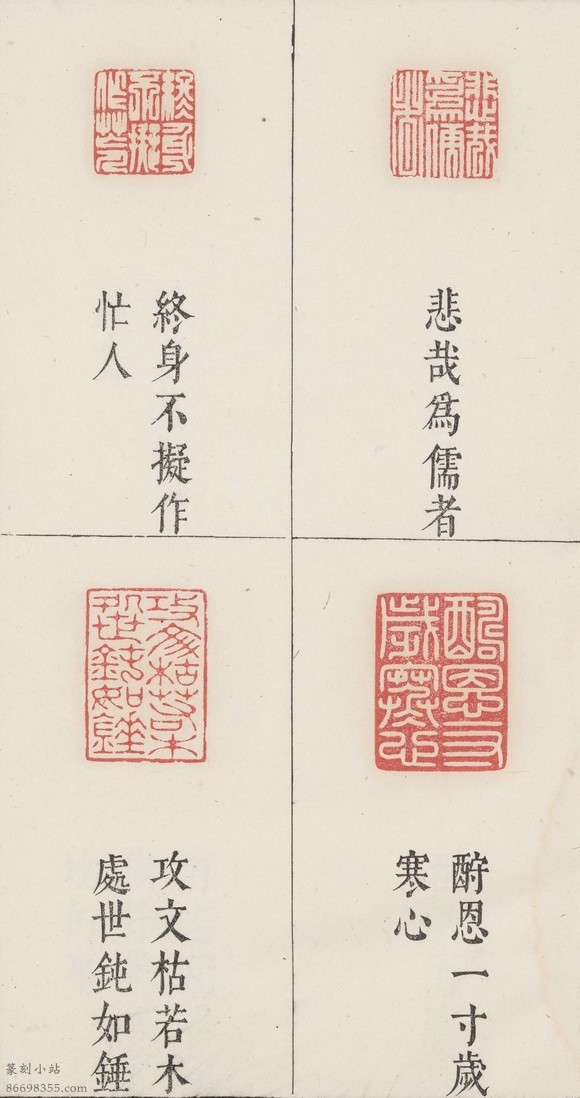 悲哉為儒者
終身不擬作
忙人
酧恩一寸歲
寒心
攻文枯若木
處世鈍如錘
篆刻小站
86698355.com